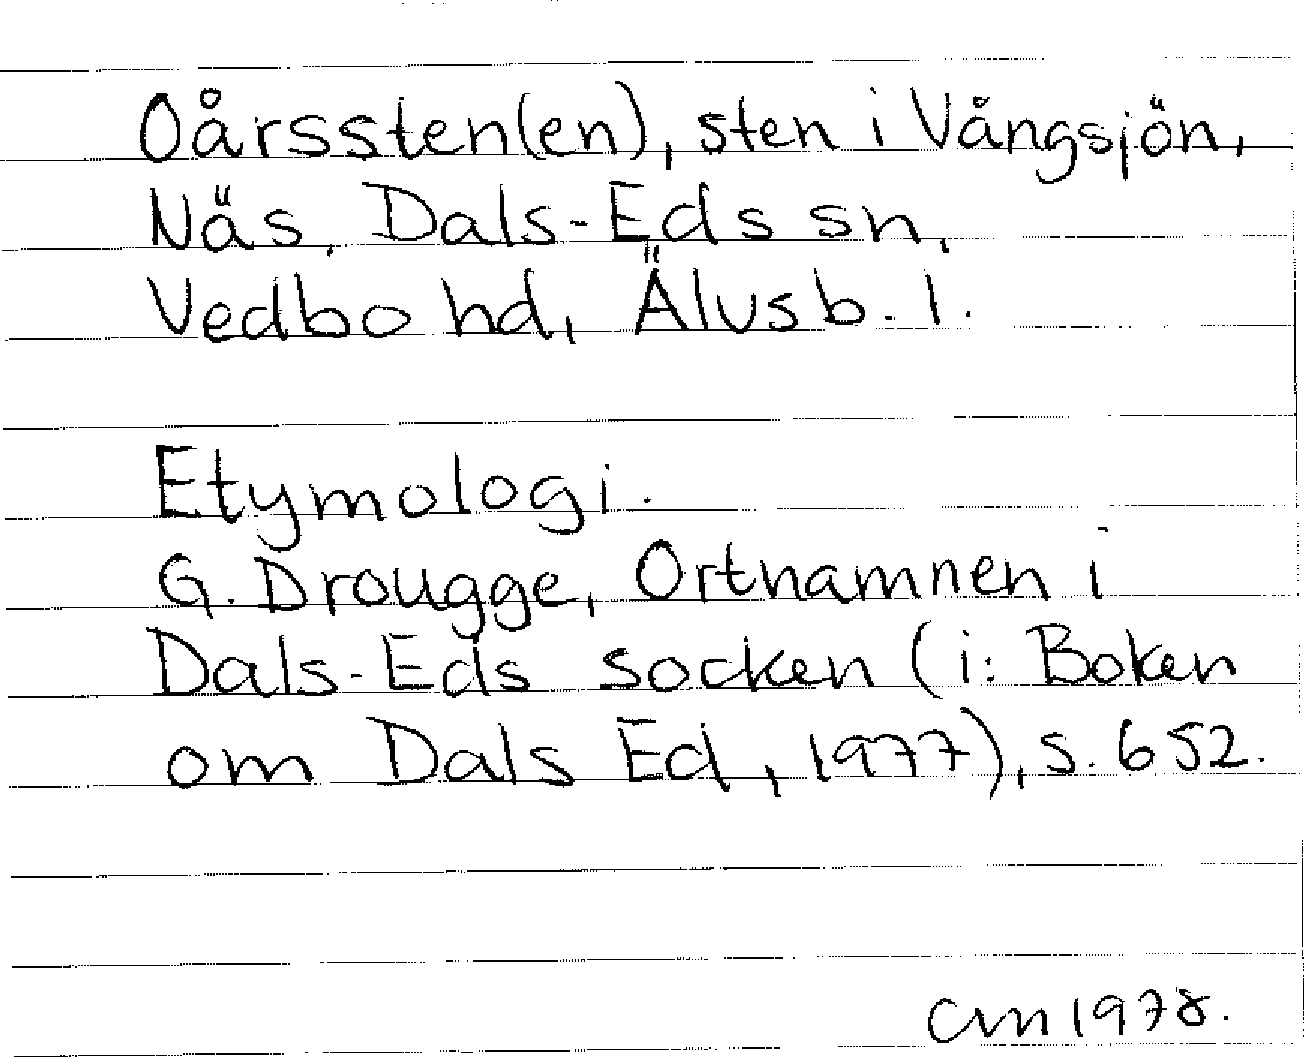 Oårssten(en), sten i Vångsjön,
Näs, Dals-Eds sn,
Vedbo hd, Älvsb. l.
Etymologi.
G. Drougge, Ortnamnen i
Dals-Eds socken (i: Boken
om Dals Ed, 1977), s. 652.
CM 1978.